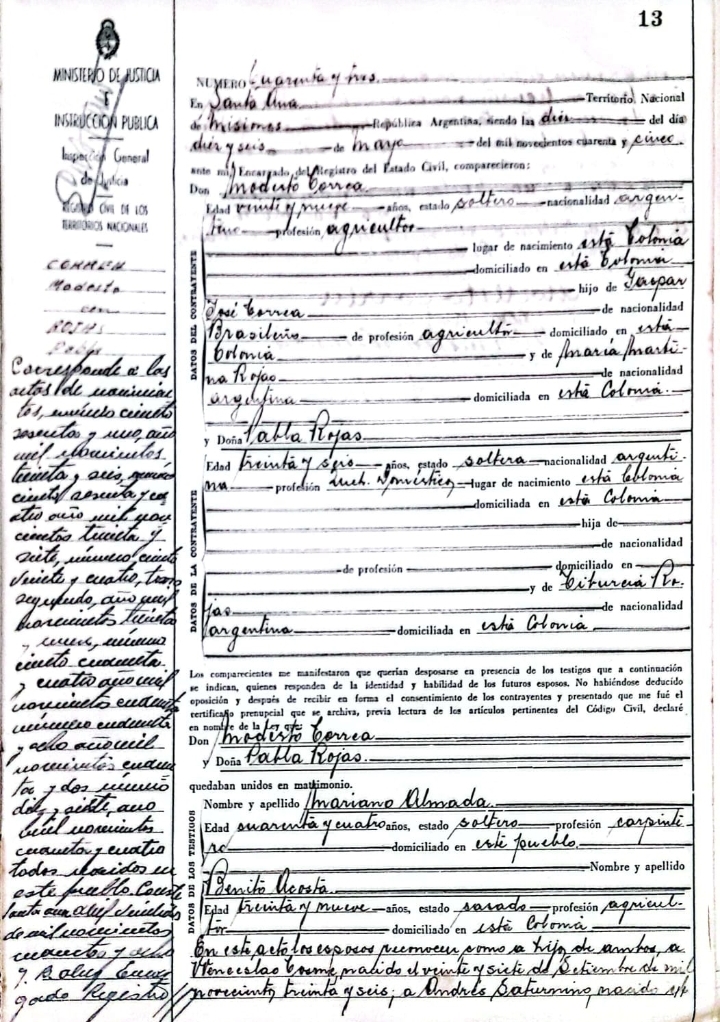 13
MINISTERIO DE JUSTICIA
E
INSTRUCCION PUBLICA
Inspección General
de Justicia
REGISTRO CIVIL DE LOS
TERRITORIOS NACIONALES
CORREA
Modesto
con
ROJAS
Pabla
Corresponde a los
actas de nacimien
tos, número ciento
sesenta y uno, año
mil novecientos
treinta y seis, número
ciento sesenta y cu
atro año mil nov
cientos treinta y
siete, número ciento
veinte y cuatro, tomo
segundo, año mil
novecientos treinta
y nueve, número
ciento cuarenta
y cuatro año mil
novecientos cuarenta
número cuarenta
y ocho año mil
novecientos cuaren
ta y dos número
doz y siete, año
mil novecientos
cuarenta y cuatro
todos nacidos en
este pueblo. Conste
de mil novecientos
cuarenta y ocho
gado Registro
NUMERO Cuarenta y tres
En Santa Ana Territorio Nacional
de Misiones República Argentina, siendo las diez del día
diez y seis de Mayo del mil novecientos cuarenta y cinco
ante mi, Encargado del Registro del Estado Civil, comparecieron:
Don Modesto Correa
Edad veinte y nueve años, estado soltero nacionalidad argen-
tino profesión agricultor
lugar de nacimiento está Colonia
domiciliado en está Colonia
hijo de Gaspar
José Correa de nacionalidad
Brasileño de profesión agricultor domiciliado en está
Colonia y de María Marti-
na Rojas de nacionalidad
argentina domiciliada en está Colonia
DATOS DEL CONTRAYENTE
y Doña Pabla Rojas
Edad treinta y seis años, estado soltera nacionalidad argenti-
na profesión Queh. Domésticos lugar de nacimiento está Colonia
domiciliada en está Colonia
hija de
de nacionalidad
de profesión domiciliado en
y de Tiburcia Ro-
jas de nacionalidad
argentina domiciliada en está Colonia
DATOS DE LA CONTRAYENTE
Los comparecientes me manifestaron que querían desposarse en presencia de los testigos que a continuación
se indican, quienes responden de la identidad y habilidad de los futuros esposos. No habiéndose deducido
oposición y después de recibir en forma el consentimiento de los contrayentes y presentado que me fué el
certificado prenupcial que se archiva, previa lectura de los artículos pertinentes del Código Civil, declaré
en nombre de la Ley que
Don Modesto Correa
y Doña Pabla Rojas
quedaban unidos en matrimonio.
Nombre y apellido Mariano Almada
Edad cuarenta y cuatro años, estado soltero profesión carpinte-
ro domiciliado en este pueblo
Nombre y apellido
Benito Acosta
Edad treinta y nueve años, estado casado profesión agricul-
tor domiciliado en está Colonia
DATOS DE LOS TESTIGOS
En este acto los esposos reconocen como a hijo de ambos, a
Wenceslao Cosme, nacido el veinte y siete de Setiembre de mil
novecientos treinta y seis; a Andrés Saturnino, nacido el